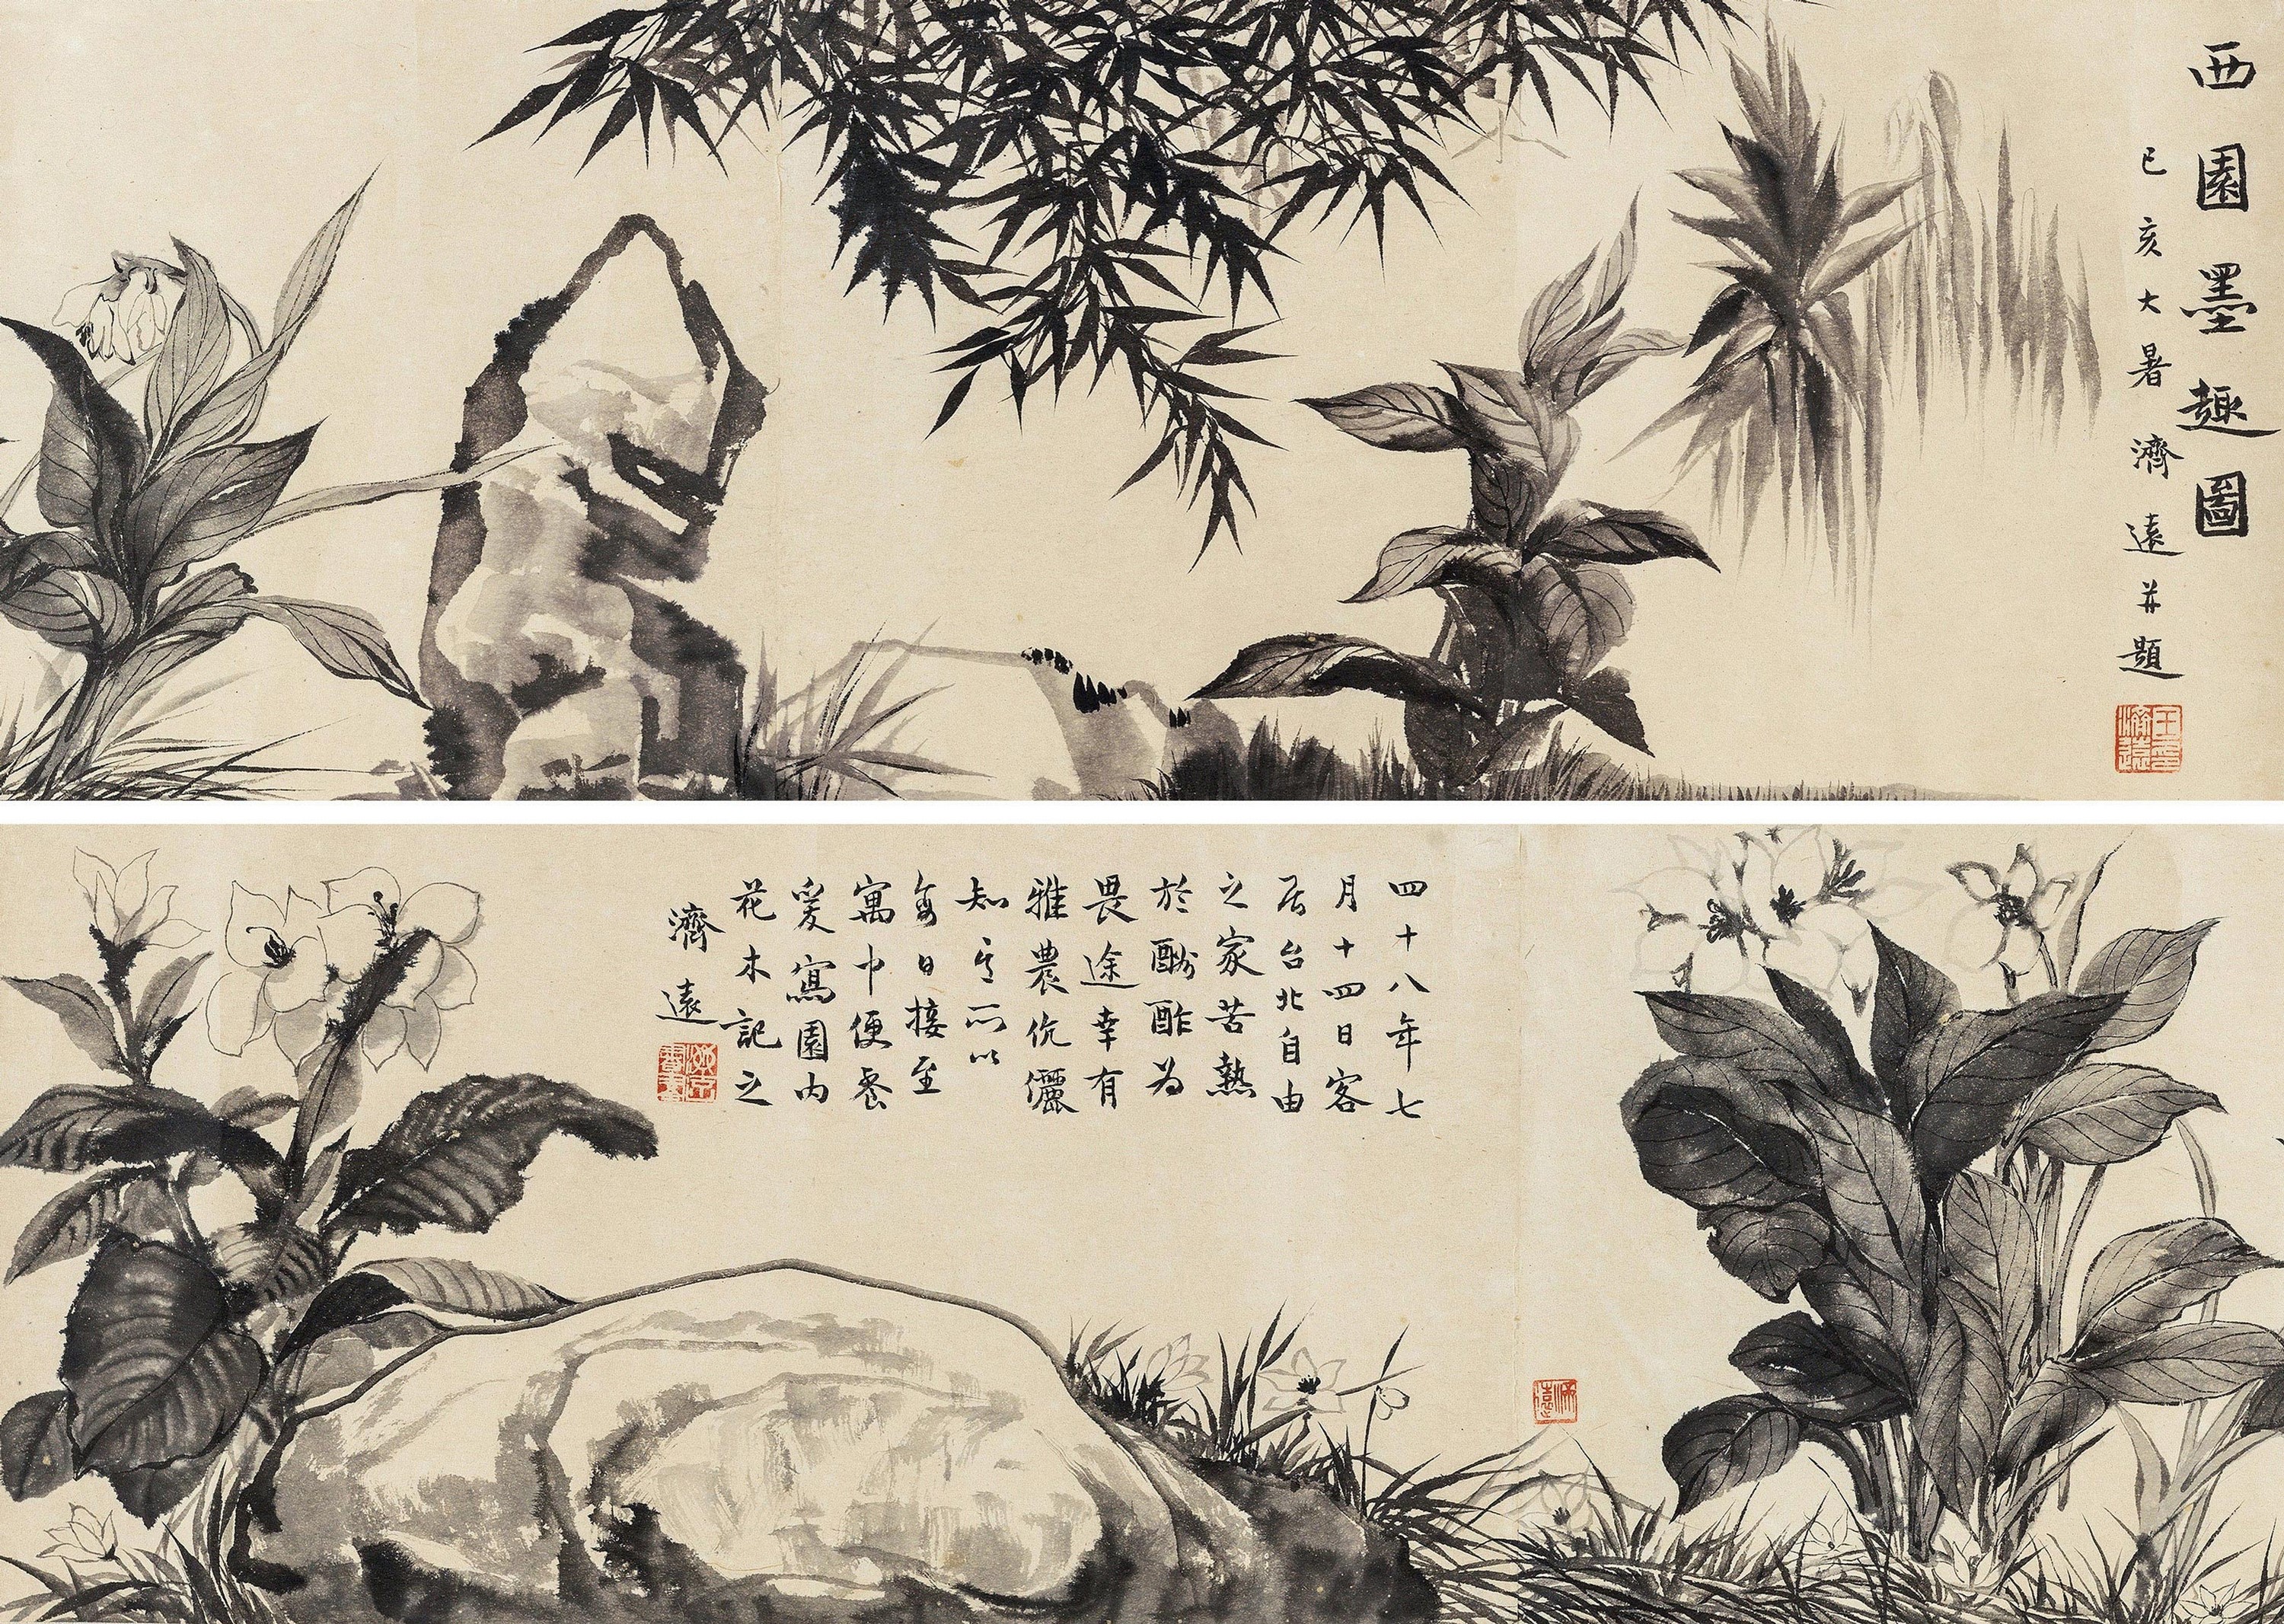 西園墨趣圖
己亥大暑濟遠并題
王濟遠印
四十八年七
月十四日客
居台北自由
之家苦熱
於酬酢為
畏途幸有
雅農伉儷
知 所以
每日接至
寓中便餐
爰寫園內
花木記之
濟遠
濟遠